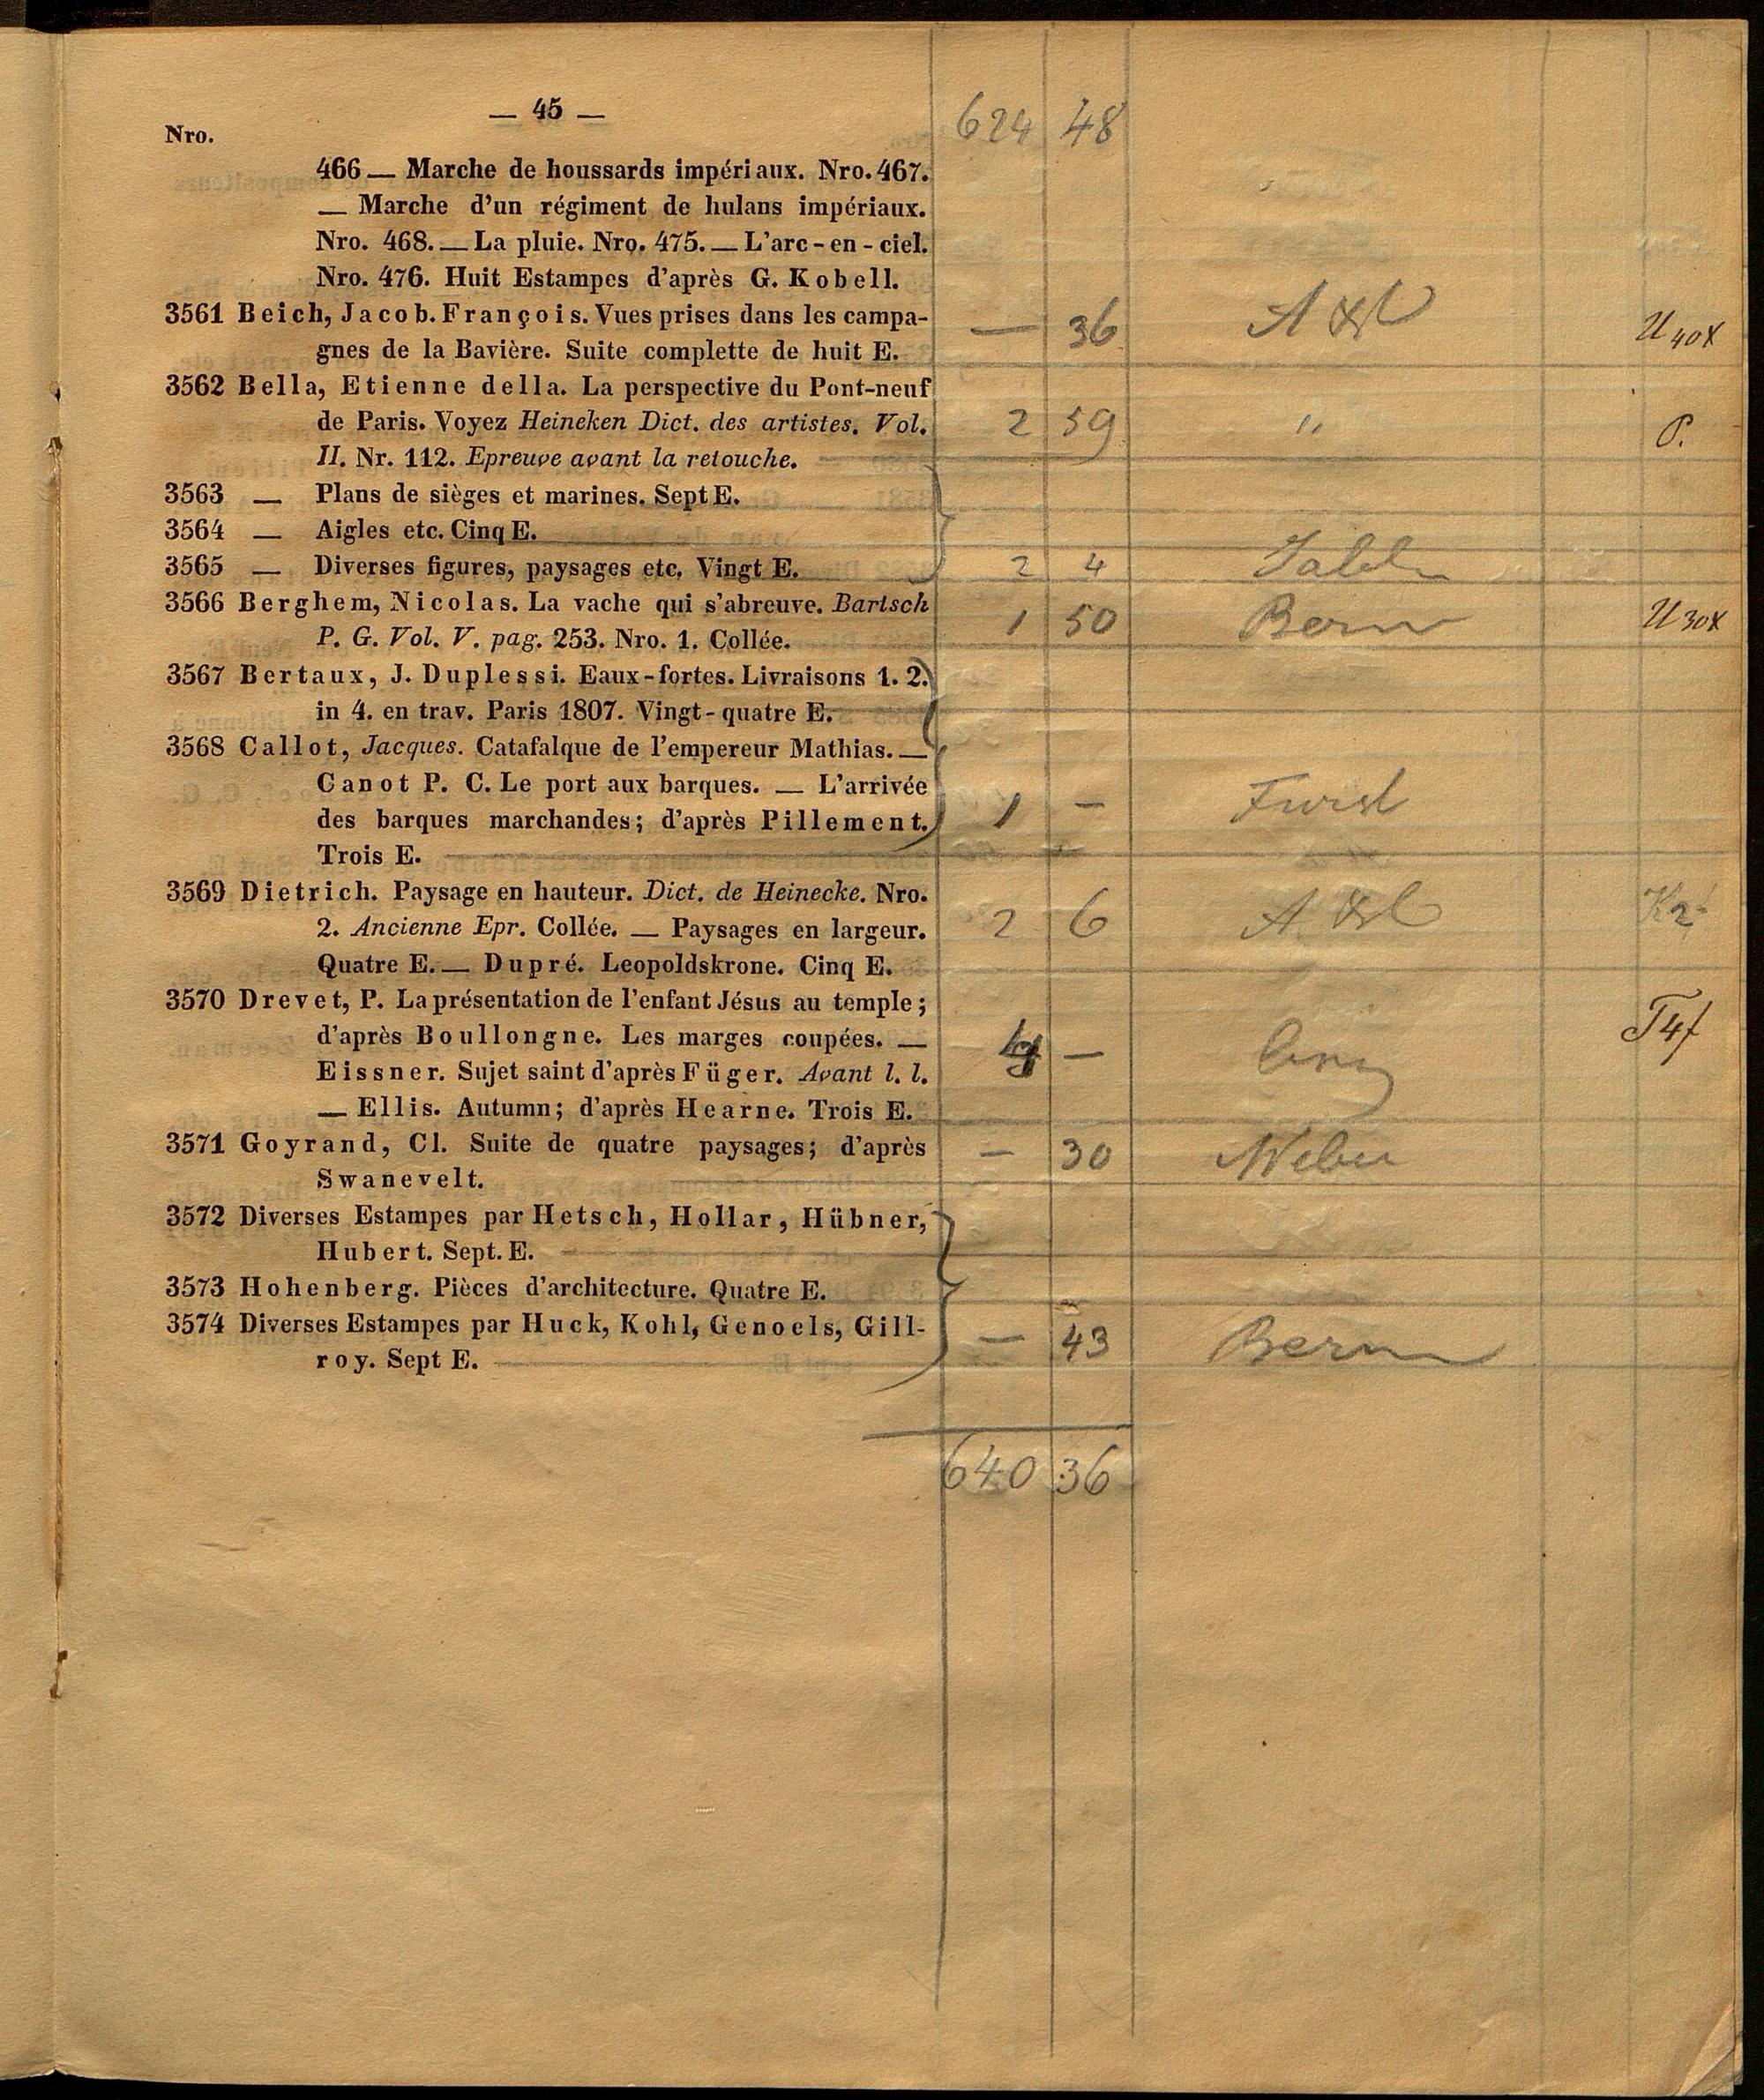 — 45 — 624 48
Nro.
466 — Marche de houssards impériaux. Nro. 467.
— Marche d'un régiment de hulans impériaux.
Nro. 468. — La pluie. Nro. 475. — L'arc-en-ciel.
Nro. 476. Huit Estampes d'après G. Kobell.
3561 Beich, Jacob. François. Vues prises dans les campa- — 36 U 40x
gnes de la Bavière. Suite complette de huit E.
3562 Bella, Etienne della. La perspective du Pont-neuf
de Paris. Voyez Heineken Dict. des artistes. Vol. 2 59 " P.
II. Nr. 112. Epreuve avant la retouche.
3563 — Plans de sièges et marines. Sept E.
3564 — Aigles etc. Cinq E.
3565 — Diverses figures, paysages etc. Vingt E. 2 4
3566 Berghem, Nicolas. La vache qui s'abreuve. Bartsch 1 50 U 30x
P. G. Vol. V. pag. 253. Nro. 1. Collée.
3567 Bertaux, J. Duplessi. Eaux-fortes. Livraisons 1. 2.
in 4. en trav. Paris 1807. Vingt-quatre E.
3568 Callot, Jacques. Catafalque de l'empereur Mathias. —
Canot P. C. Le port aux barques. — L'arrivée
des barques marchandes; d'après Pillement. 1 —
Trois E.
3569 Dietrich. Paysage en hauteur. Dict. de Heinecke. Nro.
2. Ancienne Epr. Collée. — Paysages en largeur. 2 6
Quatre E. — Dupré. Leopoldskrone. Cinq E.
3570 Drevet, P. La présentation de l'enfant Jésus au temple;
d'après Boullongne. Les marges coupées. — —
Eissner. Sujet saint d'après Füger. Avant l. l.
— Ellis. Autumn; d'après Hearne. Trois E.
3571 Goyrand, Cl. Suite de quatre paysages; d'après — 30 Weber
Swanevelt.
3572 Diverses Estampes par Hetsch, Hollar, Hübner,
Hubert. Sept. E.
3573 Hohenberg. Pièces d'architecture. Quatre E.
3574 Diverses Estampes par Huck, Kohl, Genoels, Gill- — 43
roy. Sept E.
640 36